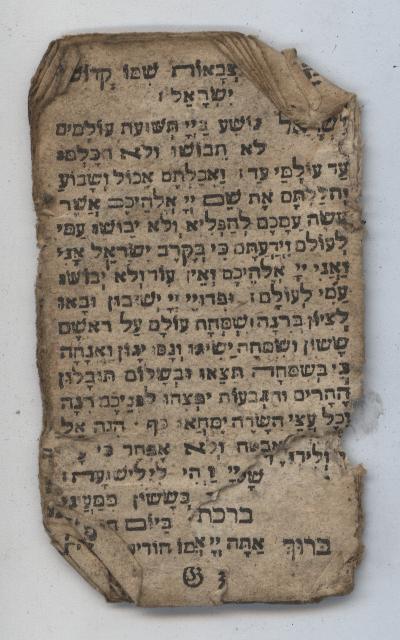 צְבָאוֹת שְׁמוֹ קְדוֹשׁ
יִשְׂרָאֵל :
יִשְׂרָאֵל נוֹשַׁע בַּיְיָ תְּשׁוּעַת עוֹלָמִים
לֹא תֵבוֹשׁוּ וְלֹא תִכָּלְמוּ
עַד עוֹלְמֵי עַד : וַאֲכַלְתֶּם אָכוֹל וְשָׂבוֹעַ
וְהִלַּלְתֶּם אֶת שֵׁם יְיָ אֱלֹהֵיכֶם אֲשֶׁר
עָשָׂה עִמָּכֶם לְהַפְלִיא וְלֹא יֵבוֹשׁוּ עַמִּי
לְעוֹלָם וִידַעְתֶּם כִּי בְקֶרֶב יִשְׂרָאֵל אָנִי
וַאֲנִי יְיָ אֱלֹהֵיכֶם וְאֵין עוֹד וְלֹא יֵבוֹשׁוּ
עַמִּי לְעוֹלָם : וּפְדוּיֵי יְיָ יְשׁוּבוּן וּבָאוּ
לְצִיּוֹן בְּרִנָּה וְשִׂמְחַת עוֹלָם עַל רֹאשָׁם
שָׂשׂוֹן וְשִׂמְחָה יַשִּׂיגוּ וְנָסוּ יָגוֹן וַאֲנָחָה
כִּי בְשִׂמְחָה תֵצֵאוּ וּבְשָׁלוֹם תּוּבָלוּן
הֶהָרִים וְהַגְּבָעוֹת יִפְצְחוּ לִפְנֵיכֶם רִנָּה
וְכָל עֲצֵי הַשָּׂדֶה יִמְחֲאוּ כָף : הִנֵּה אֵל
אֶבְטַח וְלֹא אֶפְחָד כִּי
יְיָ וַיְהִי לִי לִישׁוּעָה :
בְּשָׂשׂוֹן מִמַּעַיְנֵי
בִּרְכַּת בְּיוֹם
בָּרוּךְ אַתָּה יְיָ